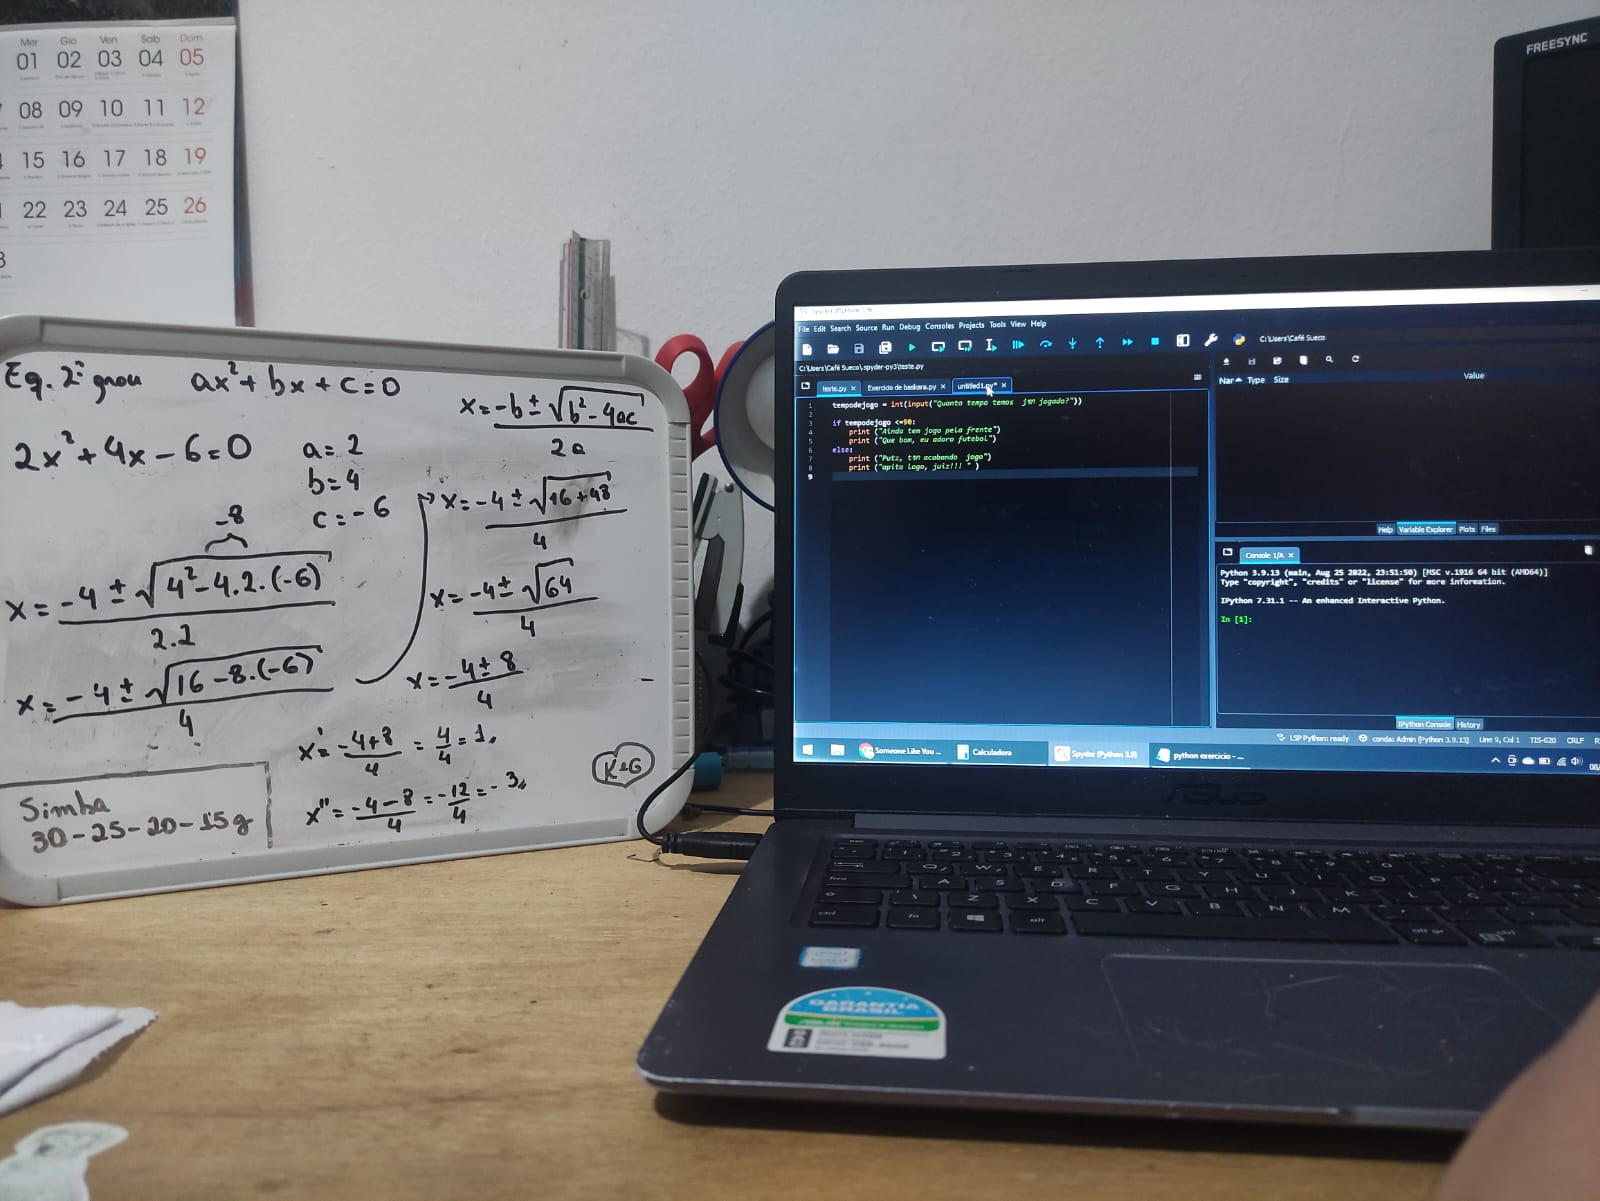 Mer Gio Ven Sab Dom
01 02 03 04 05
08 09 10 11 12
15 16 17 18 19
22 23 24 25 26
Eq. 2º grau ax²+bx+c=0
x=-b±√b²-4ac
2a
2x²+4x-6=0
a=2
b=4
c=-6
-8
x=-4±√4²-4.2.(-6)
2.2
x=-4±√16-8.(-6)
4
x=-4±√16+48
4
x=-4±√64
4
x=-4±8
4
x'=-4+8=4=1
4 4
x"=-4-8=-12=-3
4 4
K&G
Simba
30-25-20-15g
FREESYNC
File Edit Search Source Run Debug Consoles Projects Tools View Help
C:\Users\Café Sueco
C:\Users\Café Sueco\.spyder-py3\teste.py
teste.py Exercício de baskara.py untitled1.py*
1 tempodejogo = int(input("Quanto tempo temos já jogado?"))
2
3 if tempodejogo <=90:
4 print ("Ainda tem jogo pela frente")
5 print ("Que bom, eu adoro futebol")
6 else:
7 print ("Putz, tá acabando jogo")
8 print ("apita logo, juiz!!! " )
9
Nar Type Size Value
Help Variable Explorer Plots Files
Console 1/A
Python 3.9.13 (main, Aug 25 2022, 23:51:50) [MSC v.1916 64 bit (AMD64)]
Type "copyright", "credits" or "license" for more information.
IPython 7.31.1 -- An enhanced Interactive Python.
In [1]:
IPython Console History
LSP Python: ready conda: Admin (Python 3.9.13) Line 9, Col 1 TIS-620 CRLF
Someone Like You ... Calculadora Spyder (Python 3.9) python exercicio - ...
ASUS
GARANTIA
BRASIL